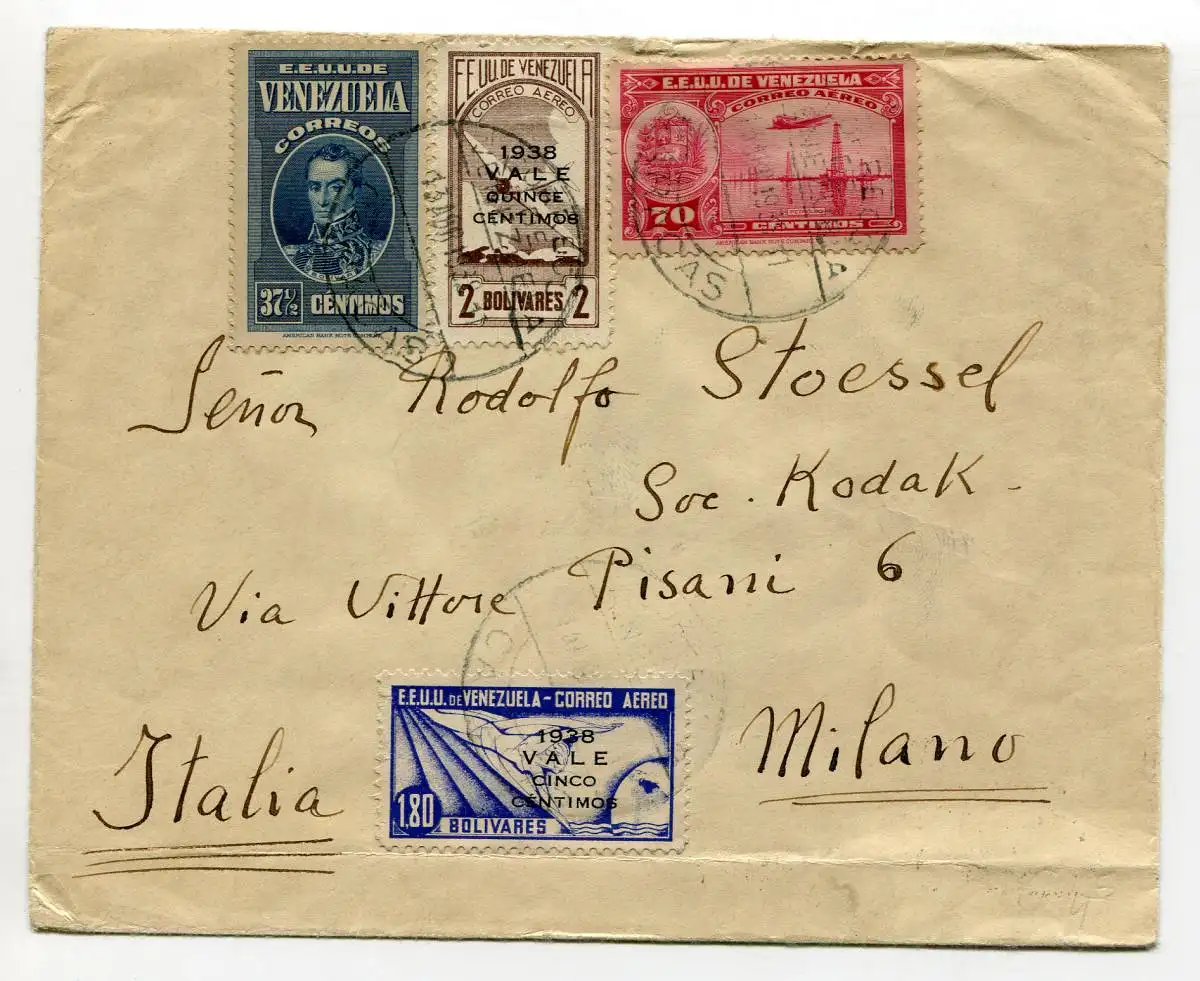 E.E.U.U. DE
VENEZUELA
CORREOS
37½ CÉNTIMOS
AMERICAN BANK NOTE COMPANY
EE.UU. DE VENEZUELA
CORREO AEREO
1938
VALE
QUINCE
CÉNTIMOS
2 BOLIVARES 2
E.E.U.U. DE VENEZUELA
CORREO AÉREO
70
CÉNTIMOS
AMERICAN BANK NOTE COMPANY
Señor Rodolfo Stoessel
Soc. Kodak -
Via Vittore Pisani 6
Milano
Italia
E.E.U.U. DE VENEZUELA - CORREO AEREO
1938
VALE
CINCO
CÉNTIMOS
1,80 BOLIVARES